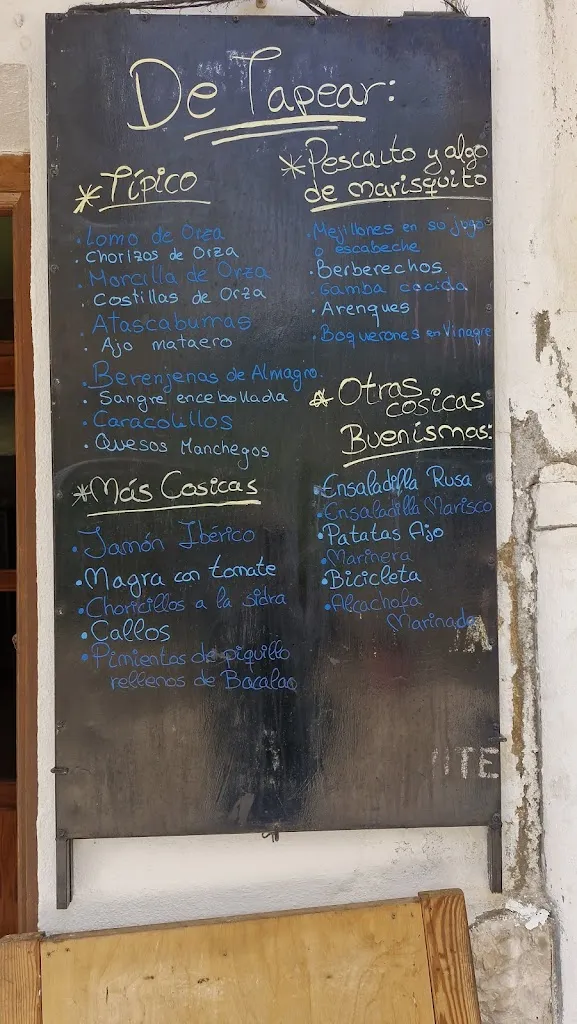 De Tapear:
*Típico
· Lomo de Orza
· Chorizos de Orza
· Morcilla de Orza
· Costillas de Orza
· Atascaburras
· Ajo mataero
· Berenjenas de Almagro.
· Sangre encebollada
· Caracolillos
· Quesos Manchegos
*Más Cosicas
· Jamón Ibérico
· Magra con tomate
· Choricillos a la sidra
· Callos
· Pimientos de piquillo
rellenos de Bacalao
*Pescaito y algo
de marisquito
· Mejillones en su jugo
o escabeche
· Berberechos.
· Gamba cocida
· Arenques
· Boquerones en Vinagre
*Otras
cosicas
Buenísmas:
· Ensaladilla Rusa
· Ensaladilla Marisco
· Patatas Ajo
· Marinera
· Bicicleta
· Alcachofa
Marinada